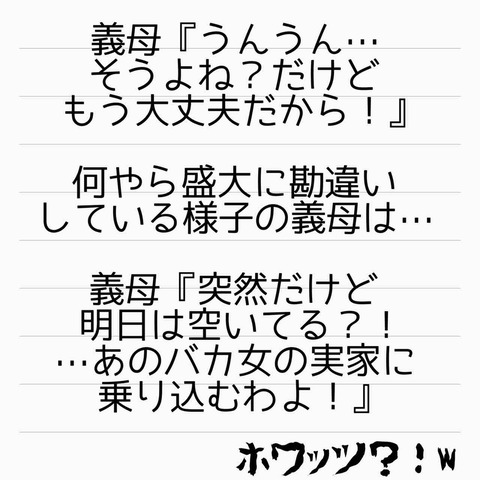 義母『うんうん…
そうよね？だけど
もう大丈夫だから！』
何やら盛大に勘違い
している様子の義母は…
義母『突然だけど
明日は空いてる？！
…あのバカ女の実家に
乗り込むわよ！』
ホワッツ？！w